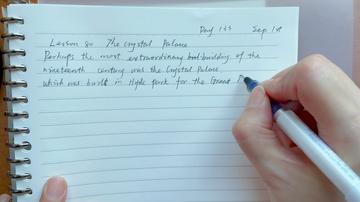 Day 125 Sep 1st
Lesson 80 The Crystal Palace
Perhaps the most extraordinary building of the
nineteenth century was the Crystal Palace
which was built in Hyde park for the Great